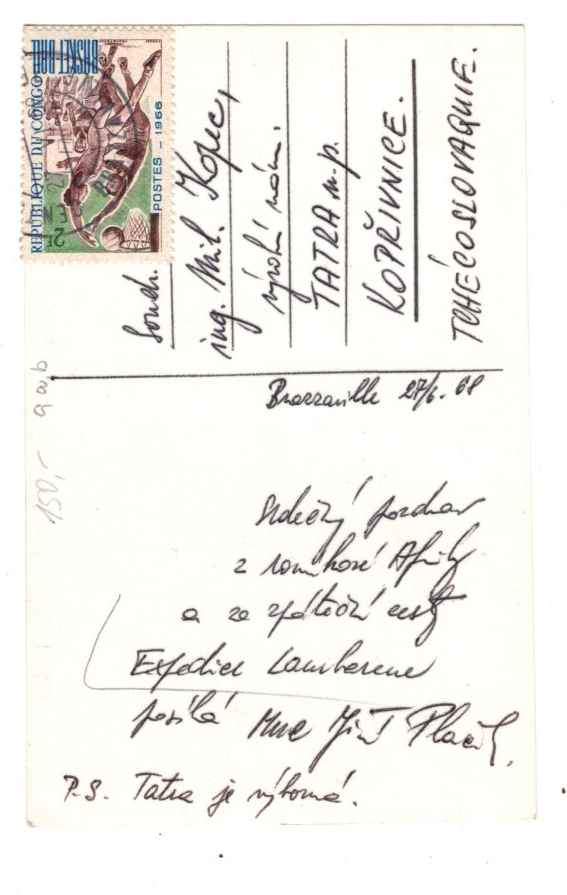 BASKET BALL
REPUBLIQUE DU CONGO
POSTES - 1966
2F
Soudr.
ing. Mil. Kopec,
výrobní nám.
TATRA n.p.
KOPŘIVNICE.
TCHÉCOSLOVAQUIE.
Brazzaville 27/6. 68
Srdečný pozdrav
z rovníkové Afriky
a ze zpáteční cesty
Expedice Lambarene
posílá MUC Jiří Plaček.
P.S. Tatra je výborná.
150,-